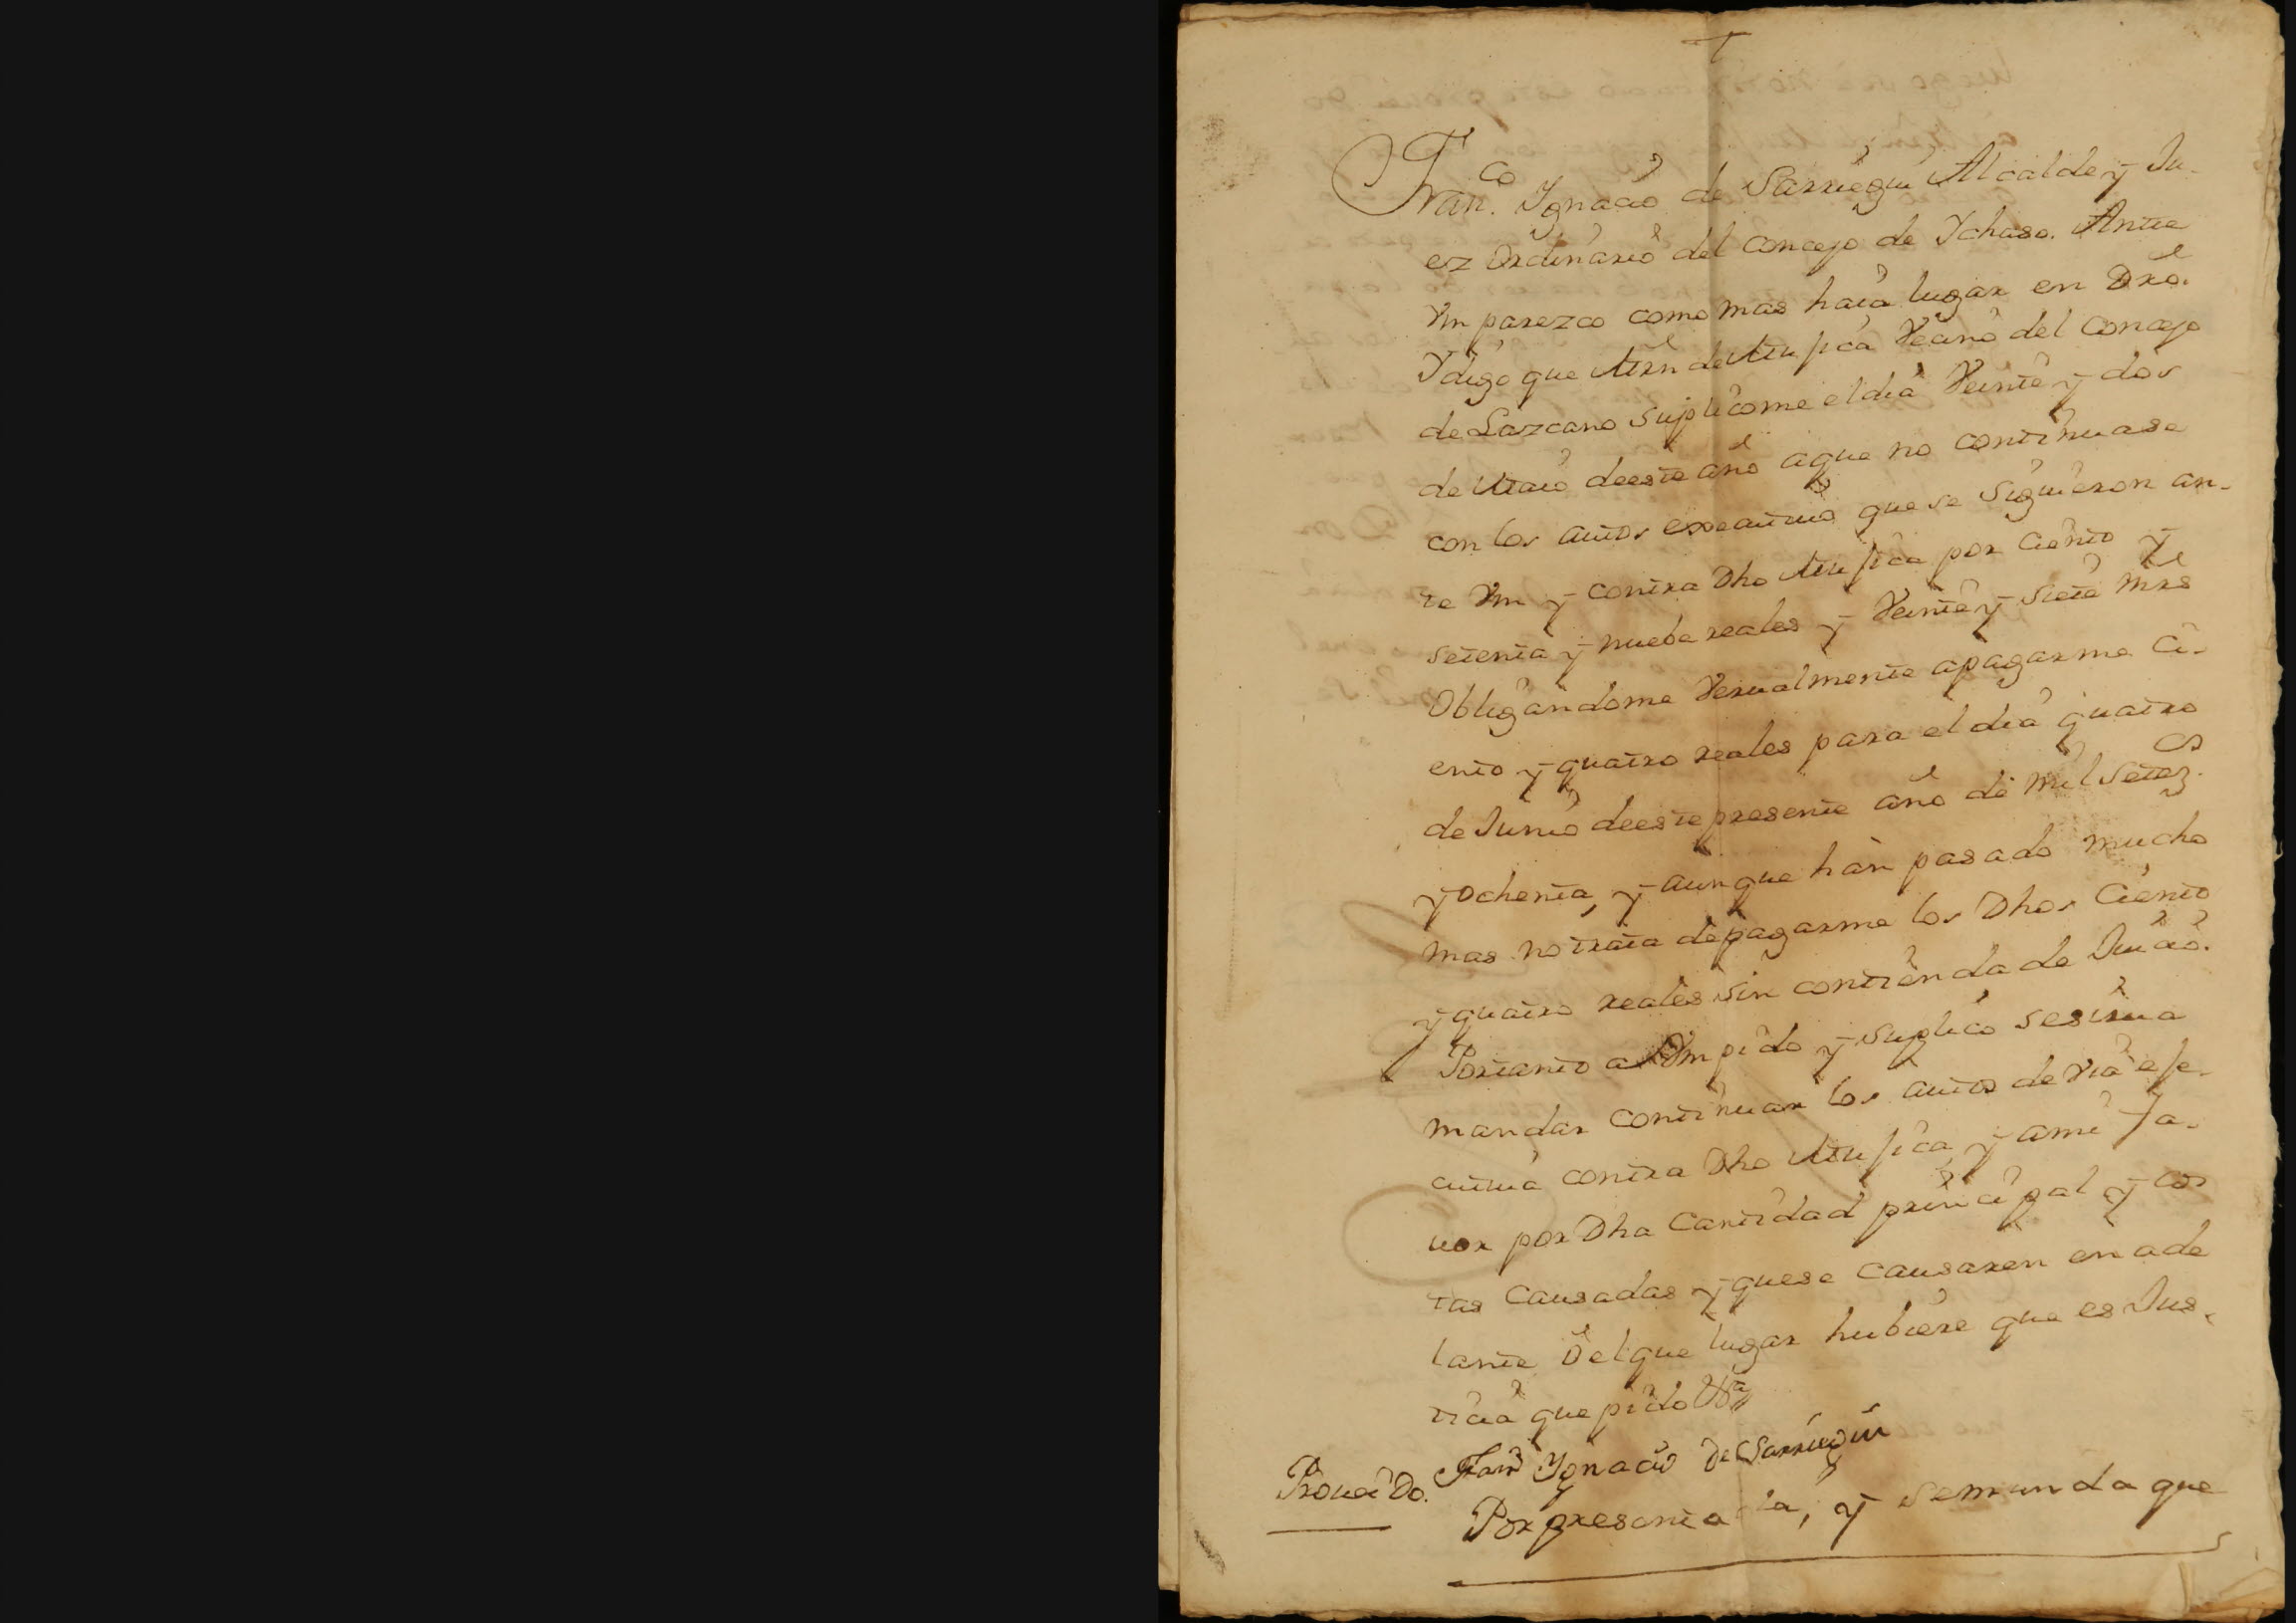 Fran.co Ygnacio de Sarriegui Alcalde y Ju-
ez Ordinario del Concejo de Ychaso. Ante
Vm parezco como mas haia lugar en Dro.
Y digo que Mrn de Mujica Vecino del Concejo
de Lazcano suplicome el dia Veinte y dos
de Maio de este año a que no continuase
con los autos executivos que se siguieron an-
te Vm y contra Dho Mujica por Ciento y
setenta y nuebe reales y Veinte y siete mrs
Obligandome Verualmente apagarme Ci-
ento y quatro reales para el dia quatro
de Junio de este presente año de mil Setez.os
y Ochenta, y aunque han pasado mucho
mas no trata de pagarme los Dhos Ciento
y quatro reales sin contienda de Juicio.
Portanto a Vm pido y suplico se sirua
mandar continuar los autos de via eje-
cutiua contra Dho Mujica, y a mi fa-
uor por Dha Cantidad principal y cos
tas Causadas y que se causaren en ade
lante O el que lugar hubiere que es Jus-
ticia que pido V.a
Fran.co Ygnacio de Sarriegui
Proueido.
Por presentada, y se manda que